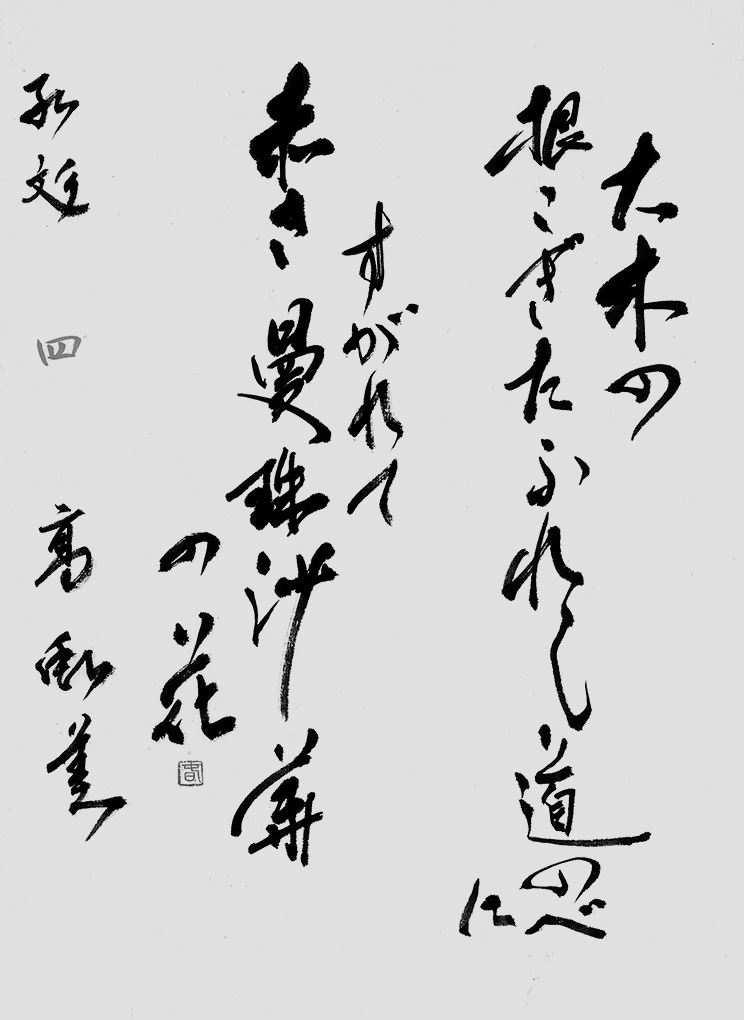 大木の
根こぎたふれし道のべ
に
すがれて
赤き曼珠沙華
の花
四
高
美